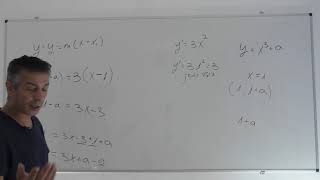 y-y₁=m(x-x₁)
a)=3(x-1)
-a=3x-3
=3x-3+1+a
=3x+a-2
y'=3x²
y'=3·1²=3
y=x³+a
x=1
(1, 1+a)
1+a